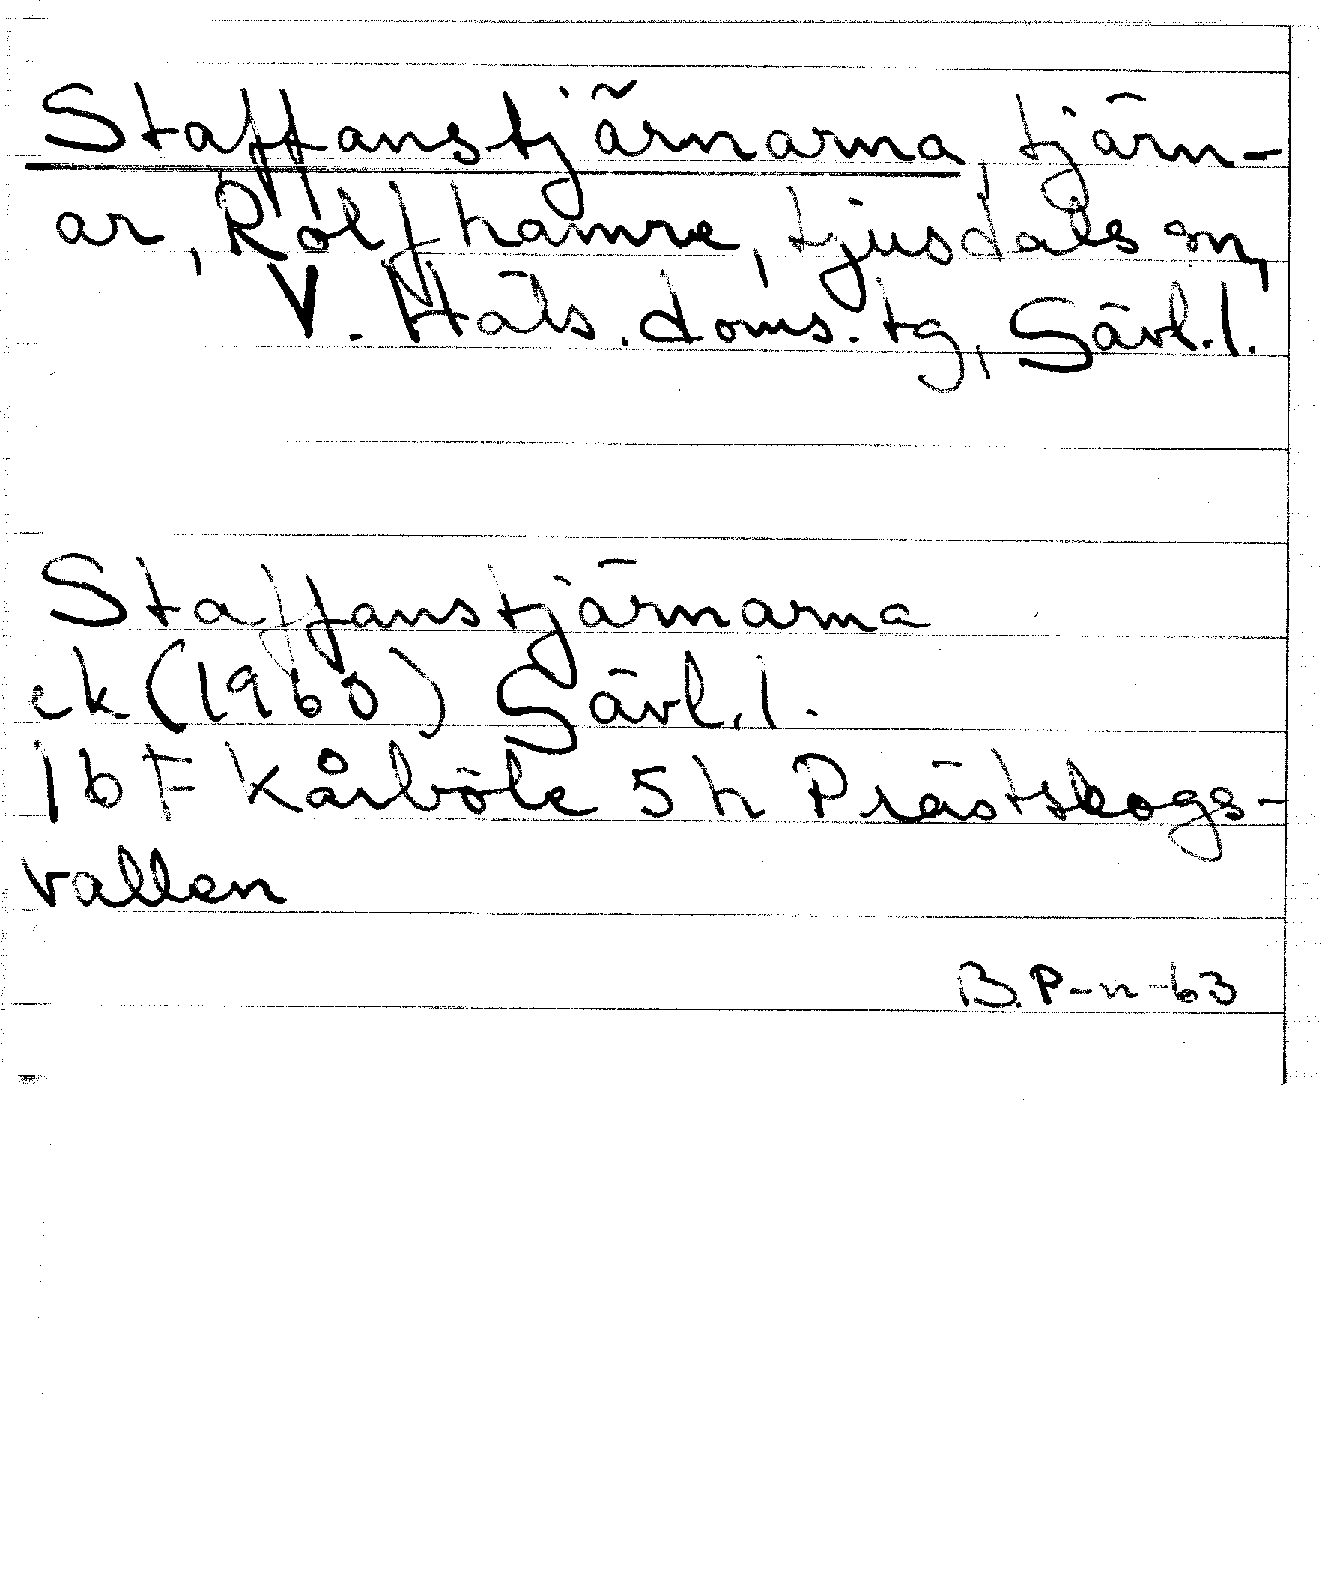 Staffanstjärnarna, tjärn-
ar, Rolfhamre, Ljusdals sn,
V. Häls. doms. tg, Gävl.l.
Staffanstjärnarna
ek (1960) Gävl.l.
16F Kårböle 5h Prästskogs-
vallen
B.P-n-63